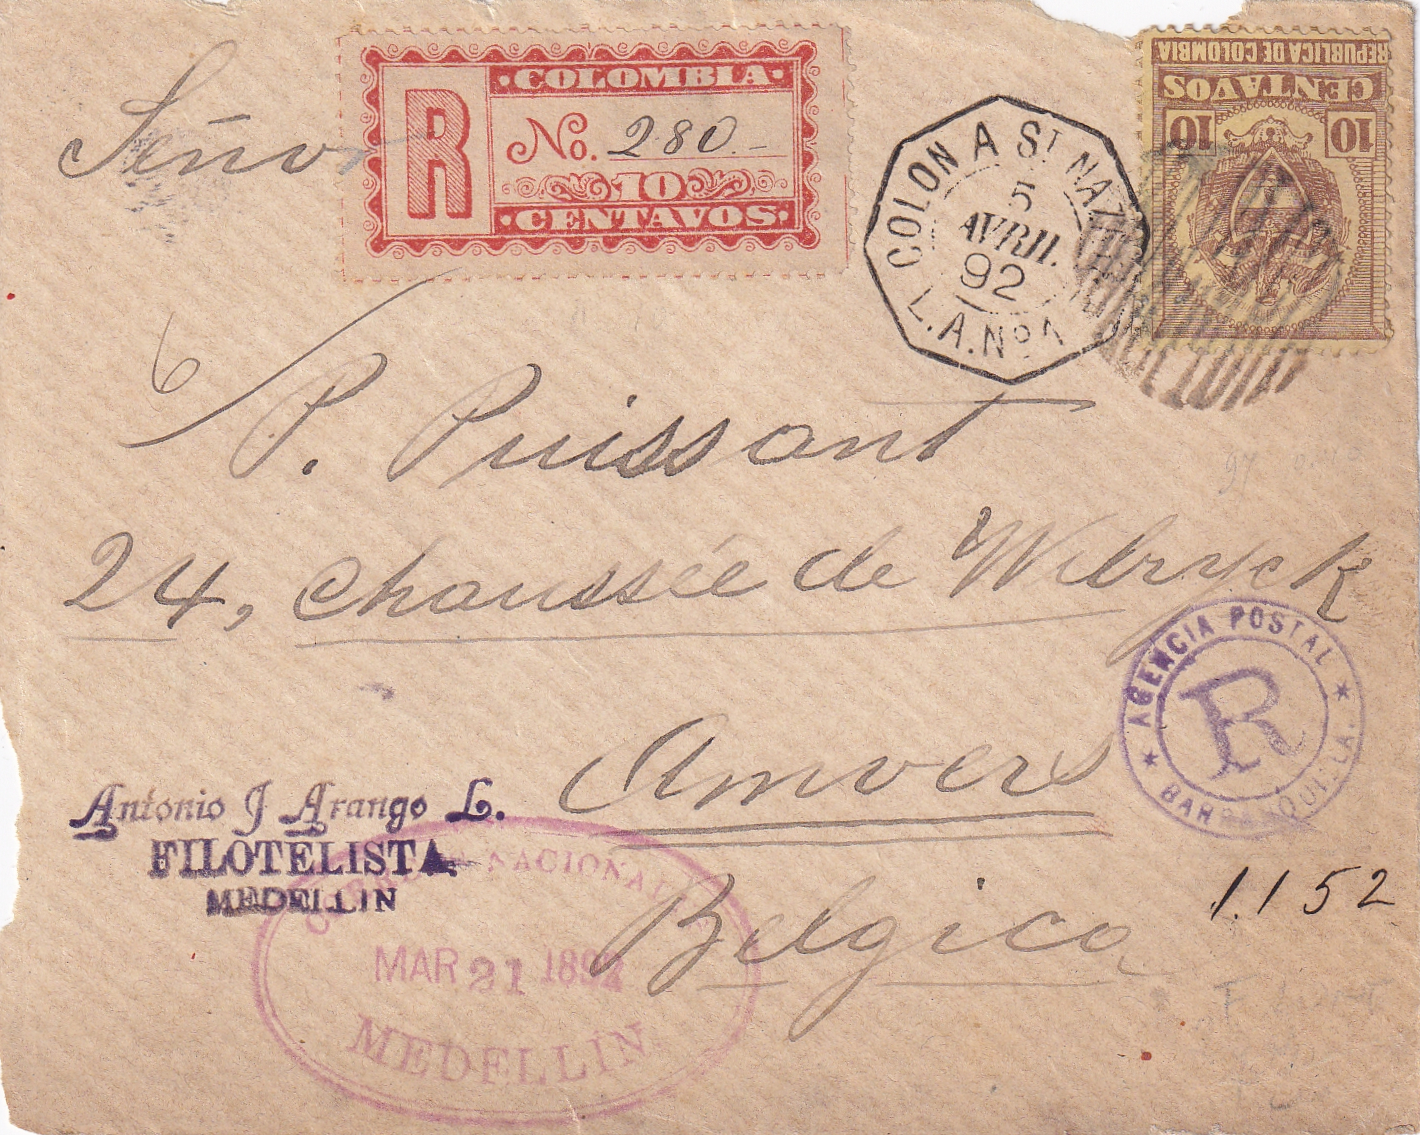 Señor
R
COLOMBIA
No. 280.-
10
CENTAVOS
COLON A ST NAZ
5
AVRIL
92
L.A. No 1
REPUBLICA DE COLOMBIA
CENTAVOS
10 10
P. Puissant
24, chaussée de Wilryck
Anvers
Belgica
AGENCIA POSTAL
R
BARRANQUILLA.
Antonio J Arango L.
FILOTELISTA
MEDELLIN
NACIONAL
MAR 21 1892
MEDELLIN
1.152